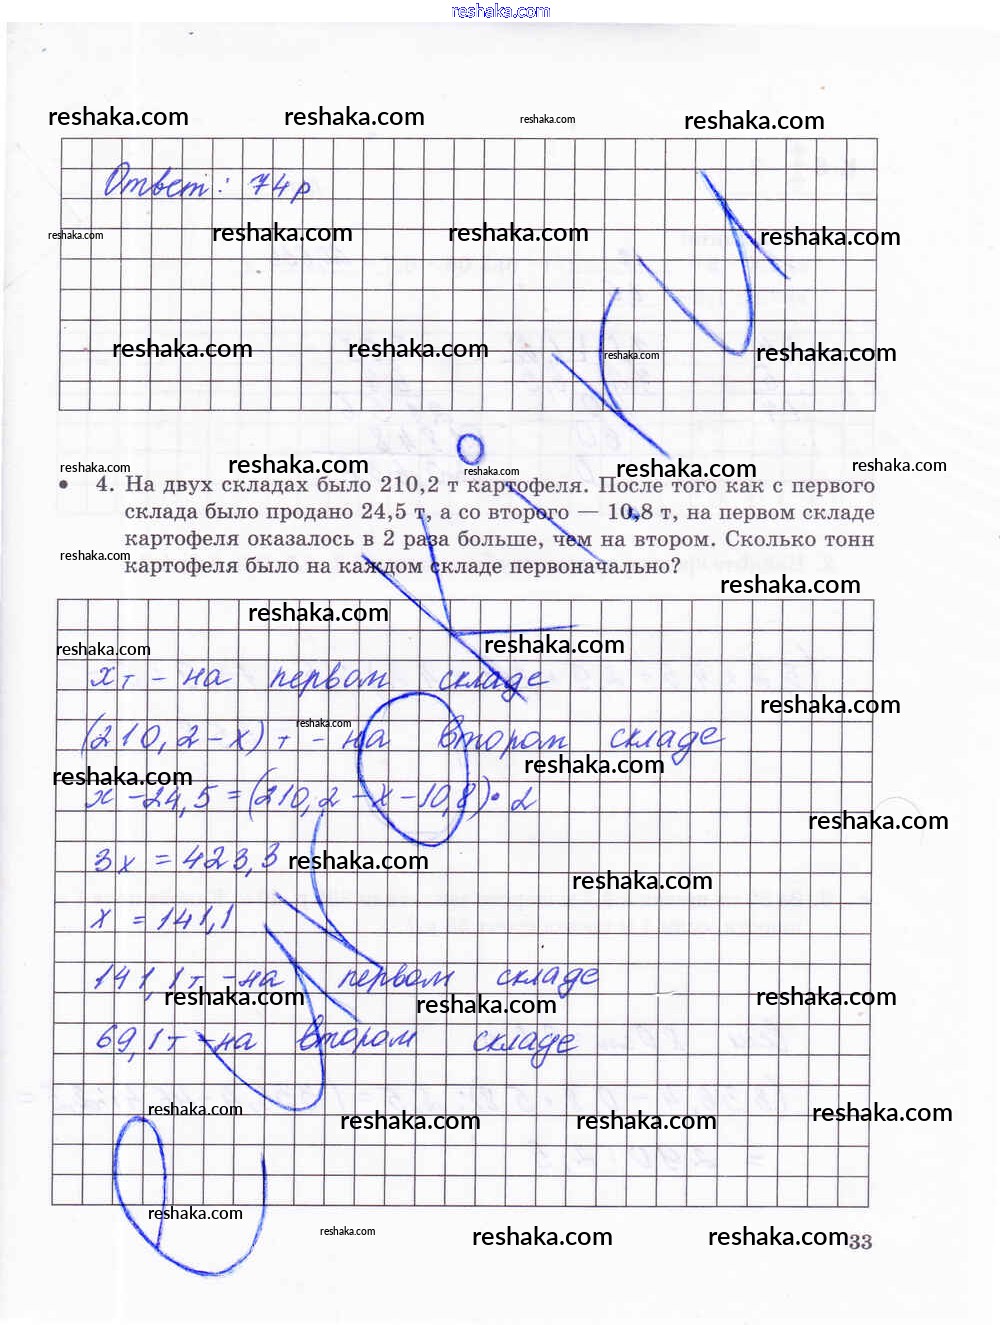 reshaka.com
reshaka.com reshaka.com reshaka.com reshaka.com
Ответ: 74р
reshaka.com reshaka.com reshaka.com reshaka.com
reshaka.com reshaka.com reshaka.com reshaka.com
reshaka.com reshaka.com reshaka.com reshaka.com reshaka.com
• 4. На двух складах было 210,2 т картофеля. После того как с первого
склада было продано 24,5 т, а со второго — 10,8 т, на первом складе
картофеля оказалось в 2 раза больше, чем на втором. Сколько тонн
картофеля было на каждом складе первоначально?
reshaka.com reshaka.com
reshaka.com
reshaka.com reshaka.com
xт - на первом складе
reshaka.com reshaka.com
(210,2-x)т - на втором складе
reshaka.com reshaka.com
x-24,5=(210,2-x-10,8)·2
reshaka.com
3x=423,3
reshaka.com reshaka.com
x=141,1
141,1т-на первом складе
reshaka.com reshaka.com reshaka.com
69,1т-на втором складе
reshaka.com reshaka.com reshaka.com reshaka.com
reshaka.com reshaka.com reshaka.com reshaka.com
33